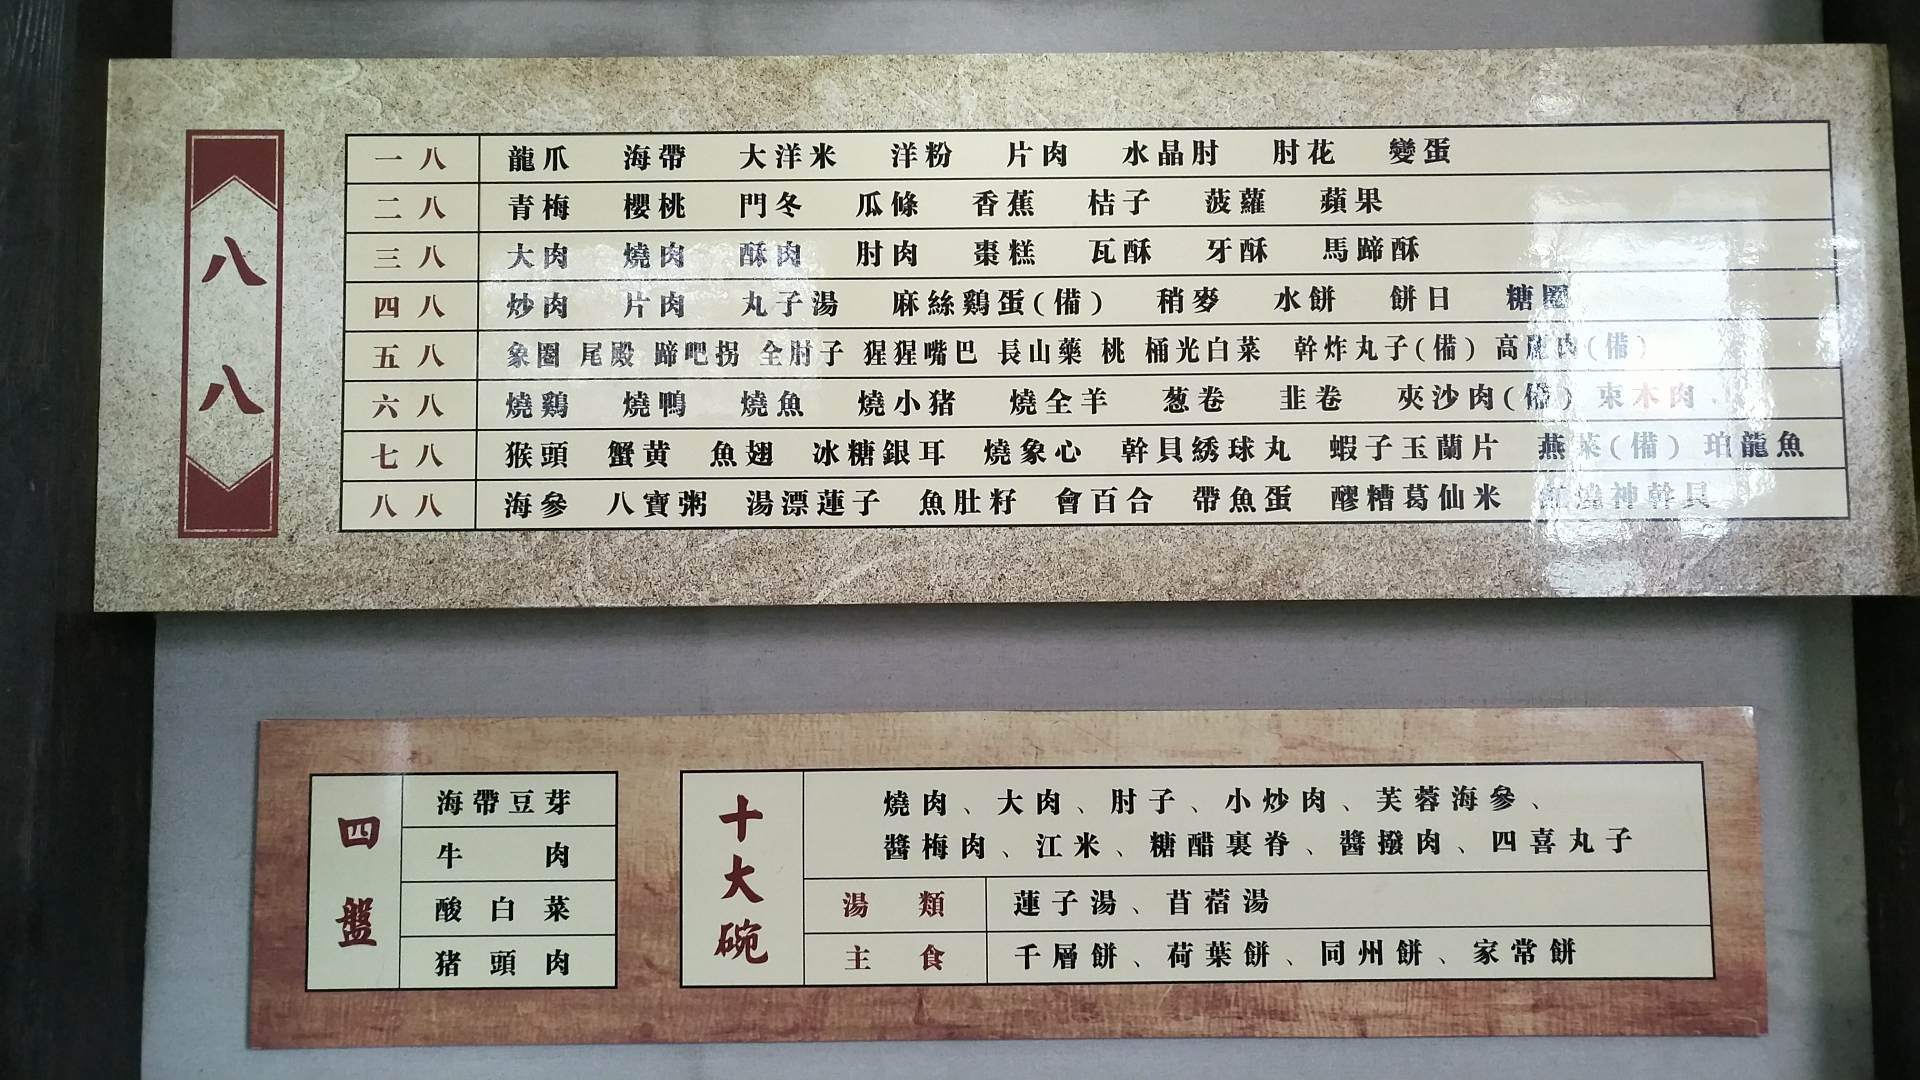 八八
一八 龍爪 海帶 大洋米 洋粉 片肉 水晶肘 肘花 變蛋
二八 青梅 櫻桃 門冬 瓜條 香蕉 桔子 菠蘿 蘋果
三八 大肉 燒肉 酥肉 肘肉 棗糕 瓦酥 牙酥 馬蹄酥
四八 炒肉 片肉 丸子湯 麻絲鷄蛋(備) 稍麥 水餅 餅日 糖圈
五八 象圈 尾殿 蹄吧拐 全肘子 猩猩嘴巴 長山藥 桃 桶光白菜 幹炸丸子(備) 高麗肉(備)
六八 燒鷄 燒鴨 燒魚 燒小猪 燒全羊 葱卷 韭卷 夾沙肉(備) 束木肉
七八 猴頭 蟹黄 魚翅 冰糖銀耳 燒象心 幹貝綉球丸 蝦子玉蘭片 燕菜(備) 珀龍魚
八八 海參 八寶粥 湯漂蓮子 魚肚籽 會百合 帶魚蛋 醪糟葛仙米 燒神幹貝
四盤
海帶豆芽
牛肉
酸白菜
猪頭肉
十大碗
燒肉、大肉、肘子、小炒肉、芙蓉海參、
醬梅肉、江米、糖醋裏脊、醬撥肉、四喜丸子
湯類 蓮子湯、苜蓿湯
主食 千層餅、荷葉餅、同州餅、家常餅